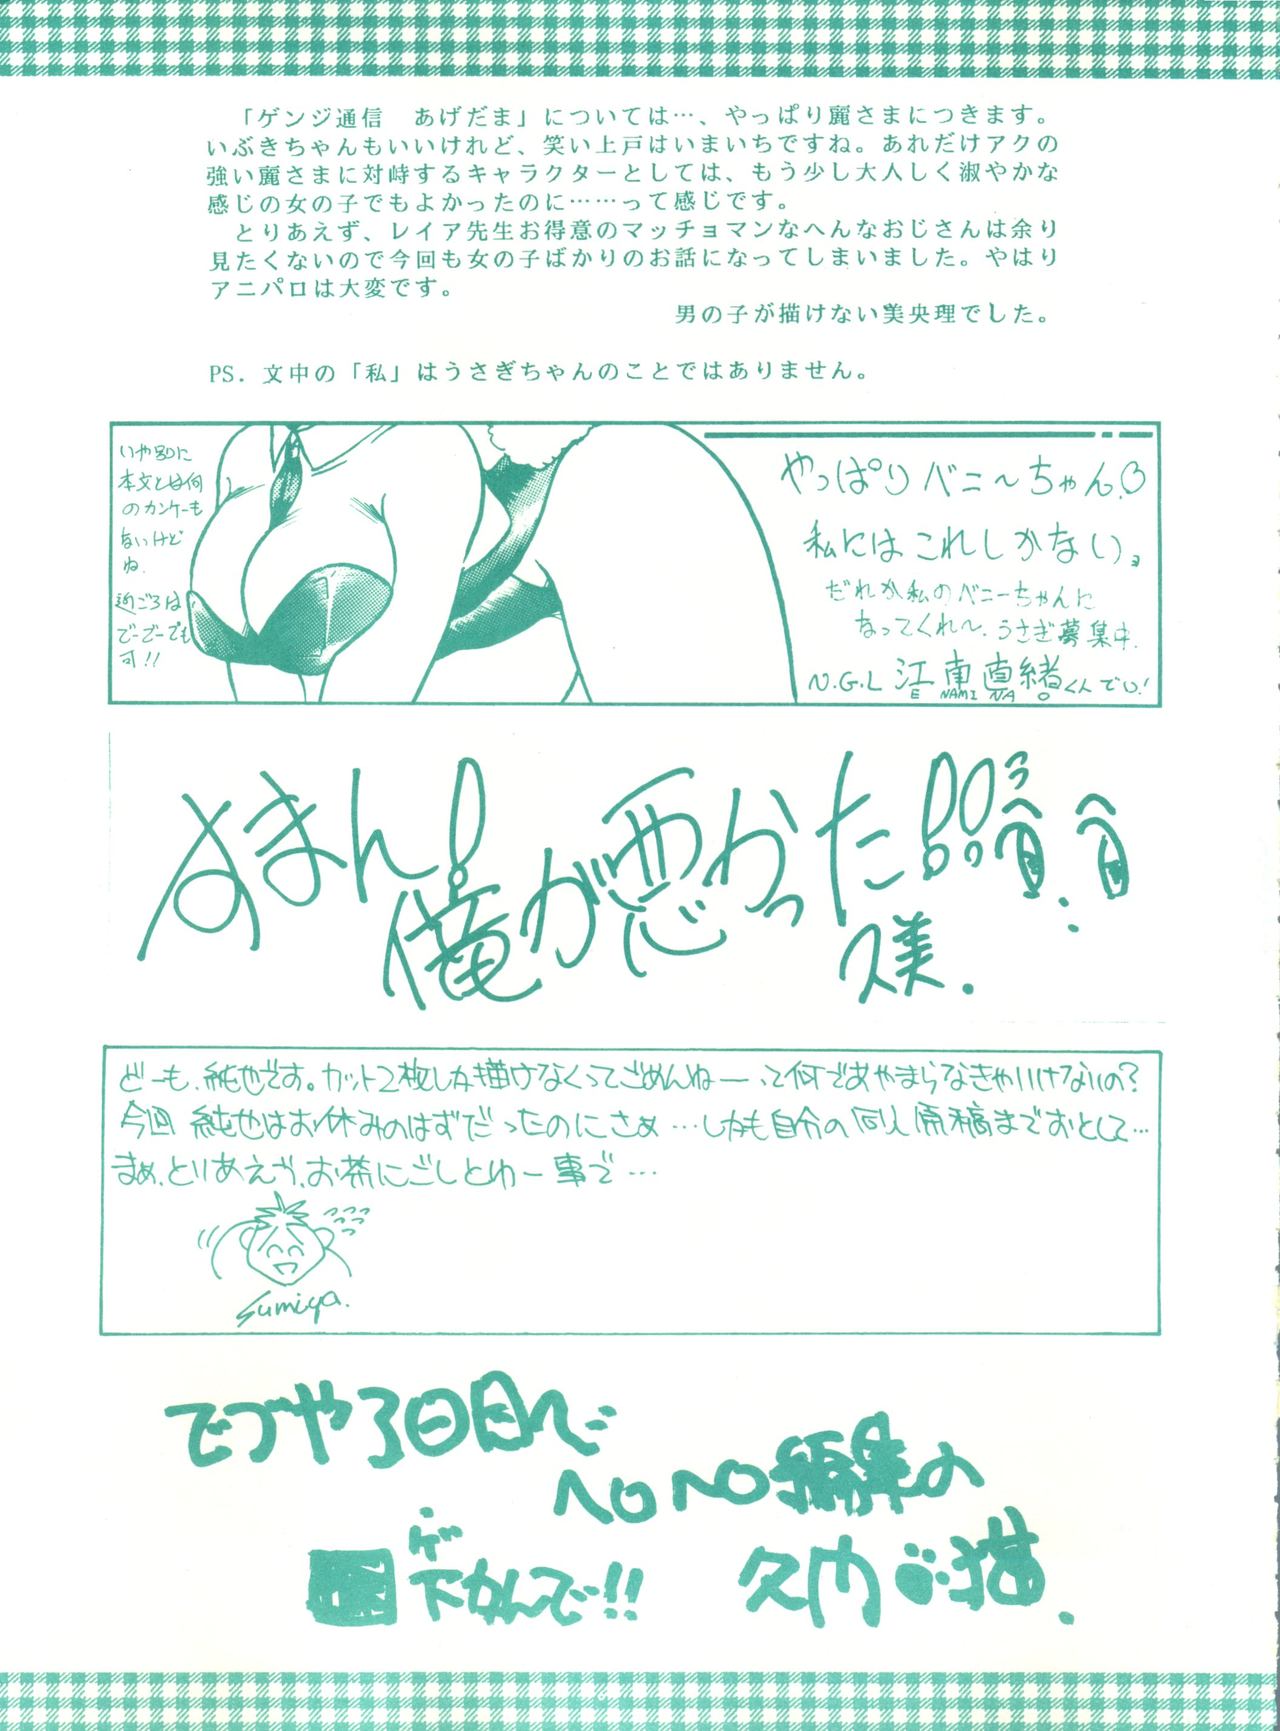 「ゲンジ通信　あげだま」については…、やっぱり麗さまにつきます。
いぶきちゃんもいいけれど、笑い上戸はいまいちですね。あれだけアクの
強い麗さまに対峙するキャラクターとしては、もう少し大人しく淑やかな
感じの女の子でもよかったのに……って感じです。
とりあえず、レイア先生お得意のマッチョマンなへんなおじさんは余り
見たくないので今回も女の子ばかりのお話になってしまいました。やはり
アニパロは大変です。
男の子が描けない美央理でした。
PS．文中の「私」はうさぎちゃんのことではありません。
いや別に
本文とは何
のカンケーも
ないけど
ね.
近ごろは
でーでーでも
可!!
やっぱりベニ〜ちゃん♡
私にはこれしかない。
だれか私のベニーちゃんに
なってくれ〜.うさぎ募集中.
N.G.L 江南直緒くんでい!
E NAMI NA O
すまん!
俺が悪かった!!
久美.
どーも、純也です。カット2枚しか描けなくってごめんねー って何であやまらなきゃいけないの?
今回 純也はお休みのはずだったのにさぁ…しかも自分の同人原稿までおとして…
まぁ、とりあえず、お茶にごしとゆー事で…
Sumiya.
でづや3日目で
ヘロヘロ編集の
久内 猫.
ゲ
下かんでー!!